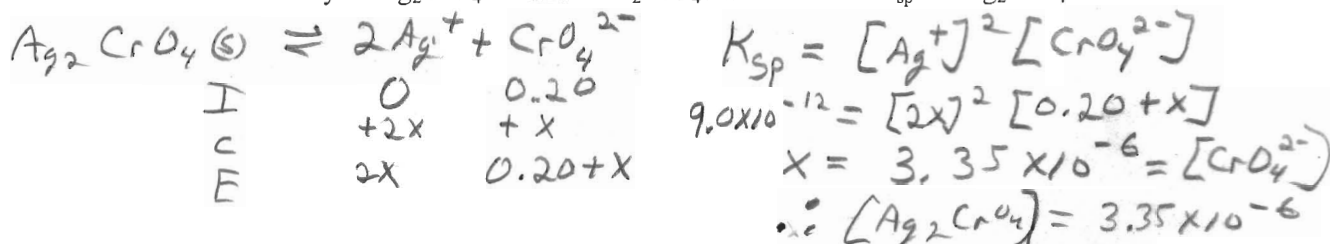 Ag₂CrO₄(s) ⇌ 2Ag⁺ + CrO₄²⁻
I 0 0.20
C +2x + x
E 2x 0.20+x
Ksp = [Ag⁺]² [CrO₄²⁻]
9.0x10⁻¹² = [2x]² [0.20 + x]
x = 3.35 x10⁻⁶ = [CrO₄²⁻]
∴ [Ag₂CrO₄] = 3.35x10⁻⁶